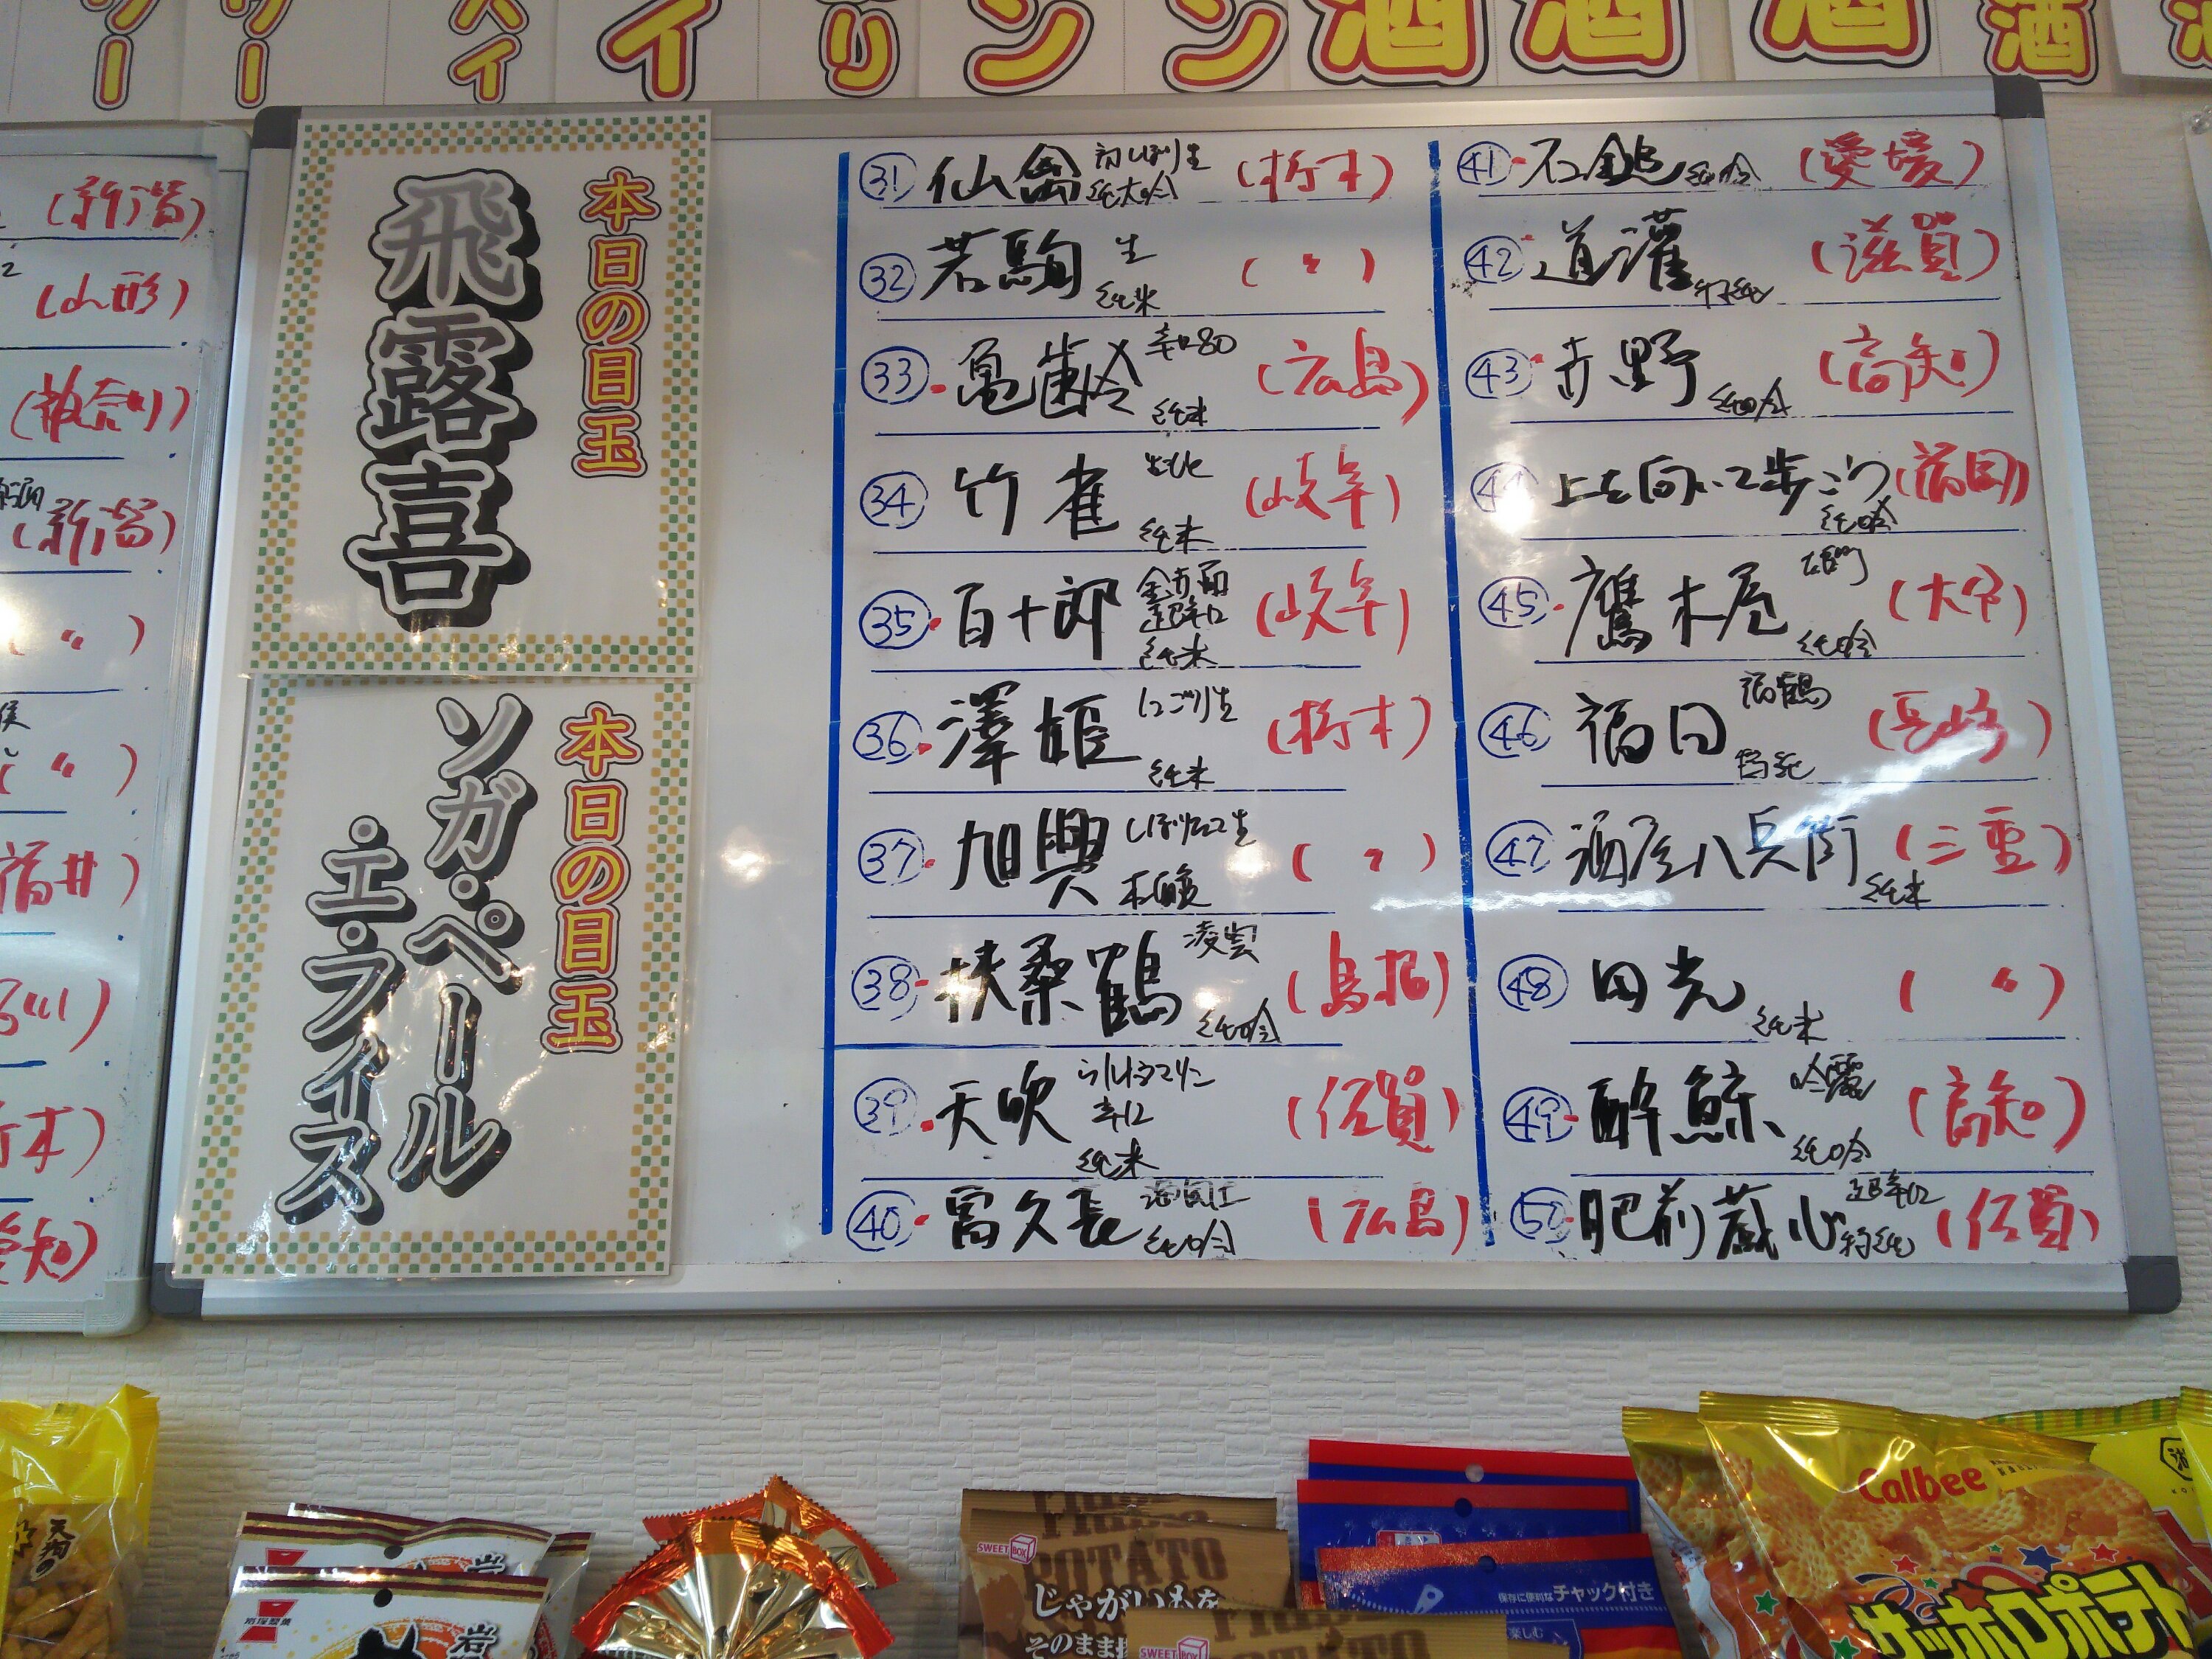 本日の目玉
飛露喜
本日の目玉
ソガ・ペール
エ・フィス
㉛ 仙禽 初しぼり生 純大吟 (栃木)
㉜ 若駒 生 純米 (〃)
㉝ 亀齢 辛口80 純米 (広島)
㉞ 竹雀 純米 (岐阜)
㉟ 百十郎 超辛口 純米 (岐阜)
㊱ 澤姫 にごり生 純米 (栃木)
㊲ 旭興 しぼりたて生 (〃)
㊳ 扶桑鶴 凌雲 純吟 (島根)
㊴ 天吹 辛口 純米 (佐賀)
㊵ 富久長 純吟 (広島)
㊶ 石鎚 純吟 (愛媛)
㊷ 道灌 特純 (滋賀)
㊸ 赤野 純吟 (高知)
㊹ 上を向いて歩こう 純吟 (福岡)
㊺ 鷹木屋 純吟
㊻ 福田 福鶴 特純 (長崎)
㊼ 酒屋八兵衛 純米 (三重)
㊽ 田光 純米 (〃)
㊾ 酔鯨 吟麗 純吟 (高知)
肥前蔵心 超辛口 特純 (佐賀)
(新潟)
(山形)
(神奈川)
(新潟)
(〃)
(〃)
福井)
木)
愛知)
SWEET BOX
POTATO
じゃがいもを
そのまま
SWEET BOX
保存に便利なチャック付き
Calbee
サッポロポテト
岩
岩
天狗の